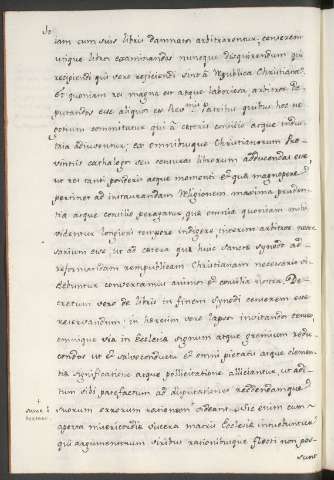 50
iam cum suis libris damnatos arbitrarentur, censerem
utique libros examinandos nuncque disquirendum qui
recipiendi qui vero reijciendi sint à Republica Christiana.
Et quoniam res magna est atque laboriosa, arbitror de-
putandos esse aliquos ex Rev.mis Patribus quibus hoc ne-
gotium committatur qui à caeteris consilio atque indus-
tria adiuventur; ex omnibusque Christianorum Pro-
vintiis cathalogos seu censuras librorum adducendas esse,
ut res tanti ponderis atque momenti et quae magnopere
pertinet ad instaurandam Religionem maxima pruden-
tia atque consilio peragatur, quae omnia quoniam mihi
videntur longiori tempore indigere interim arbitror neces-
sarium esse, ut ad caetera quae huic sanctae synodo ad
reformandam rempublicam Christianam necessaria vi-
debuntur convertamus animos et consilia nostra. De-
cretum vero de libris in finem synodi censerem esse
reservandum: in interim vero lapsos invitandos censeo
omnique via in Ecclesiae signum atque gremium redu-
cendos ut et salvoconductu et omni pietatis atque clemen-
tiae significatione atque pollicitatione alliciantur, ut adi-
tum sibi patefactum ad disputationes reddendamque
suorum errorum rationem videant.
aperta misericordiae viscera matris Ecclesiae intueantur
qui argumentorum viribus rationibusque flecti non pos-
sunt